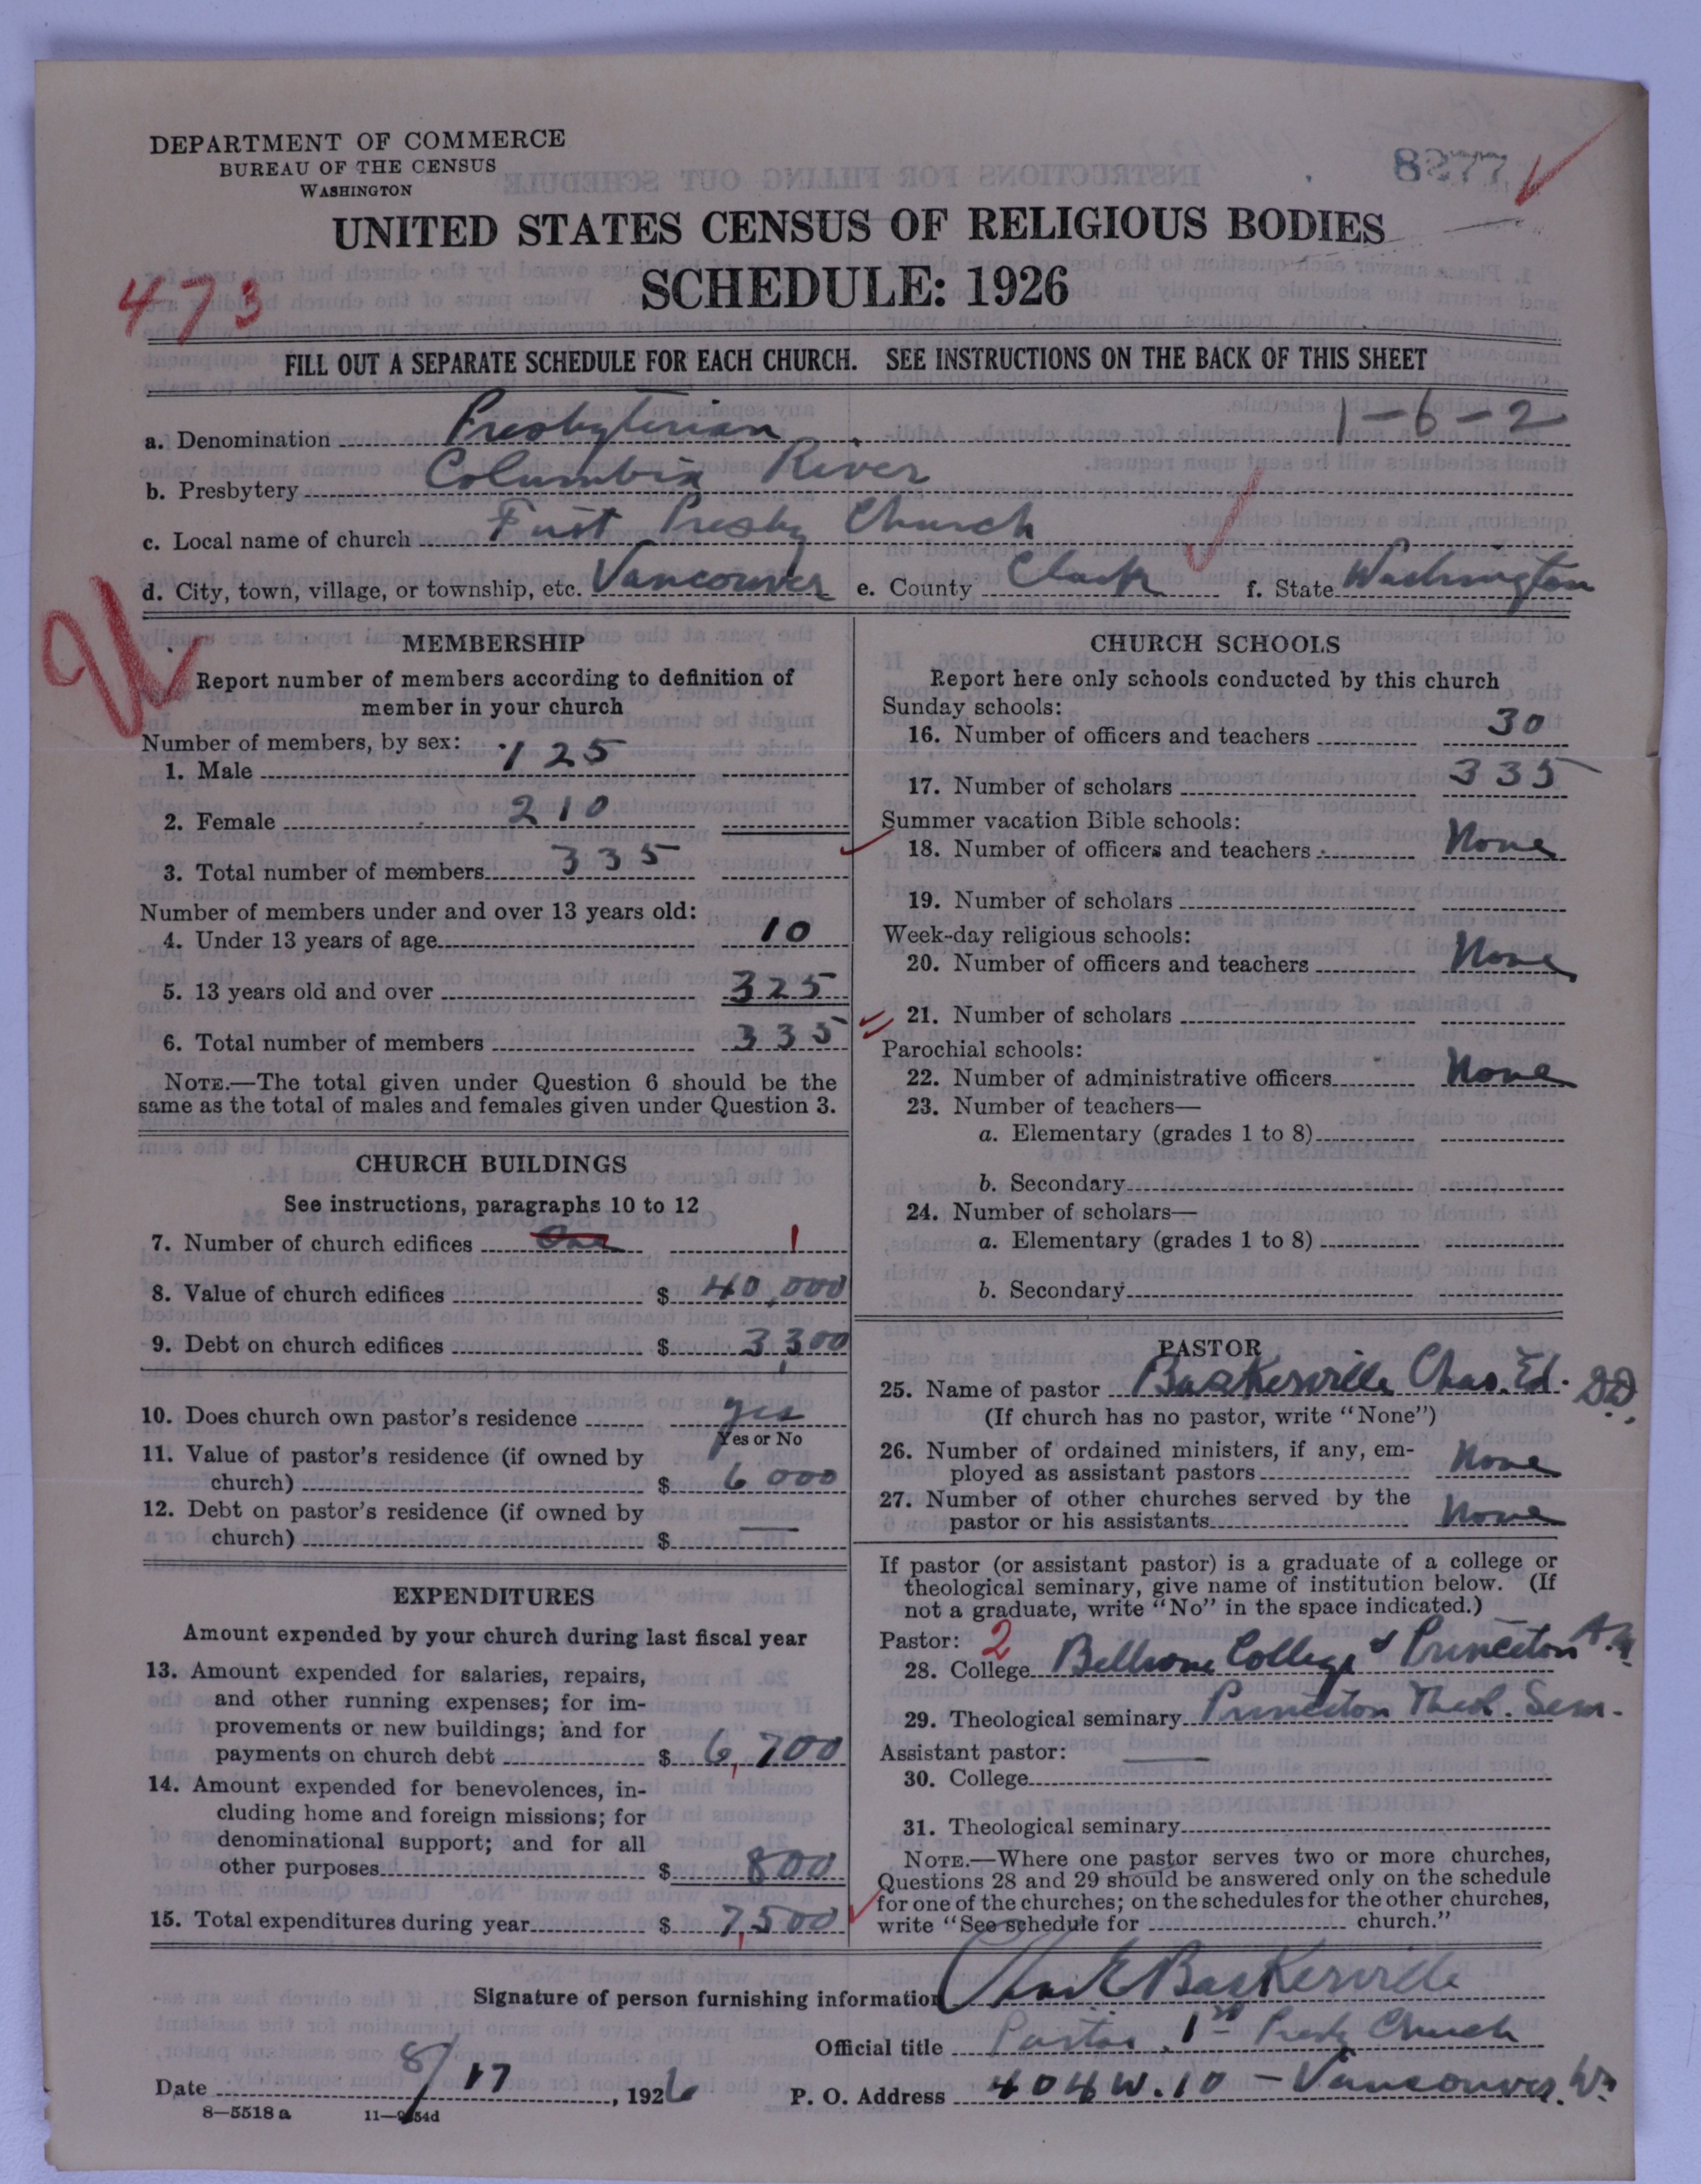 DEPARTMENT OF COMMERCE
BUREAU OF THE CENSUS
WASHINGTON
8277
UNITED STATES CENSUS OF RELIGIOUS BODIES
SCHEDULE: 1926
473
FILL OUT A SEPARATE SCHEDULE FOR EACH CHURCH. SEE INSTRUCTIONS ON THE BACK OF THIS SHEET
1-6-2
a. Denomination Presbyterian
b. Presbytery Columbia River
c. Local name of church First Presby Church
d. City, town, village, or township, etc. Vancouver e. County Clark f. State Washington
MEMBERSHIP
Report number of members according to definition of
member in your church
Number of members, by sex:
1. Male 125
2. Female 210
3. Total number of members 335
Number of members under and over 13 years old:
4. Under 13 years of age 10
5. 13 years old and over 325
6. Total number of members 335
NOTE.—The total given under Question 6 should be the
same as the total of males and females given under Question 3.
CHURCH BUILDINGS
See instructions, paragraphs 10 to 12
7. Number of church edifices One 1
8. Value of church edifices $ 40,000
9. Debt on church edifices $ 3,300
10. Does church own pastor's residence yes
Yes or No
11. Value of pastor's residence (if owned by
church) $ 6000
12. Debt on pastor's residence (if owned by
church) $ —
EXPENDITURES
Amount expended by your church during last fiscal year
13. Amount expended for salaries, repairs,
and other running expenses; for im-
provements or new buildings; and for
payments on church debt $ 6,700
14. Amount expended for benevolences, in-
cluding home and foreign missions; for
denominational support; and for all
other purposes $ 800
15. Total expenditures during year $ 7,500
CHURCH SCHOOLS
Report here only schools conducted by this church
Sunday schools:
16. Number of officers and teachers 30
17. Number of scholars 335
Summer vacation Bible schools:
18. Number of officers and teachers None
19. Number of scholars
Week-day religious schools:
20. Number of officers and teachers None
21. Number of scholars
Parochial schools:
22. Number of administrative officers None
23. Number of teachers—
a. Elementary (grades 1 to 8)
b. Secondary
24. Number of scholars—
a. Elementary (grades 1 to 8)
b. Secondary
PASTOR
25. Name of pastor Baskerville Chas. Ed. DD.
(If church has no pastor, write "None")
26. Number of ordained ministers, if any, em-
ployed as assistant pastors None
27. Number of other churches served by the
pastor or his assistants None
If pastor (or assistant pastor) is a graduate of a college or
theological seminary, give name of institution below. (If
not a graduate, write "No" in the space indicated.)
Pastor: 2
28. College Bellevue College & Princeton A.M.
29. Theological seminary Princeton Theol. Sem.
Assistant pastor: —
30. College
31. Theological seminary
NOTE.—Where one pastor serves two or more churches,
Questions 28 and 29 should be answered only on the schedule
for one of the churches; on the schedules for the other churches,
write "See schedule for church."
Signature of person furnishing information Chas E Baskerville
Official title Pastor, 1st Presby Church
Date 8/17, 1926 P. O. Address 404 W. 10 - Vancouver. Wn
8—5518 a